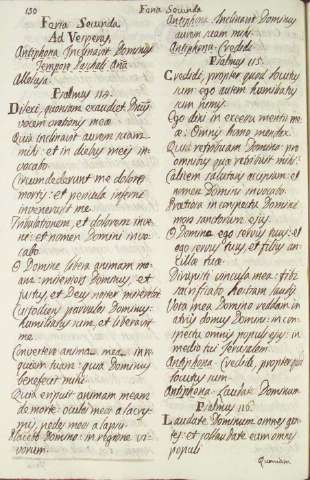 130
Feria Secunda
Feria Secunda
Ad Vesperas,
Antiphona Inclinavit Dominus
Tempore Paschali Ana
Alleluja.
Psalmus 114.
Dilexi, quoniam exaudiet Dnus
vocem orationis meæ
Quia inclinavit aurem suam
mihi: et in diebus meis in-
vocabo.
Circumdederunt me dolores
mortis: et pericula inferni
invenerunt me.
Tribulationem, et dolorem inve-
ni: et nomen Domini invo-
cabo.
O Domine libera animam me-
am: misericors Dominus, et
justus, et Deus noster miseretur
Custodiens parvulos Dominus:
humiliatus sum, et liberavit
me.
Convertere anima mea in re-
quiem tuam: quia Dominus
benefecit mihi.
Quia eripuit animam meam
de morte: oculos meos a lacry-
mis, pedes meos a lapsu.
Placebo Domino: in regione vi-
vorum.
Antiphona Inclinavit Dominus
aurem suam mihi.
Antiphona. Credidi.
Psalmus 115.
Credidi, propter quod locutus
sum: ego autem humiliatus
sum nimis.
Ego dixi in excessu mentis me-
æ: Omnis homo mendax.
Quid retribuam Domino: pro
omnibus quæ retribuit mihi?
Calicem salutaris accipiam: et
nomen Domini invocabo.
Pretiosa in conspectu Domini:
mors sanctorum ejus.
O Domine ego servus tuus: et
ego servus tuus, et filius an-
cillæ tuæ.
Dirupisti vincula mea: tibi
sacrificabo hostiam laudis
Vota mea Domino reddam in
atriis domus Domini: in con-
spectu omnis populi ejus: in
medio tui Jerusalem.
Antiphona. Credidi, propter quod
locutus sum.
Antiphona. Laudate Dominum
Psalmus 116.
Laudate Dominum omnes gen-
tes: et collaudate eum omnes
populi
Quoniam